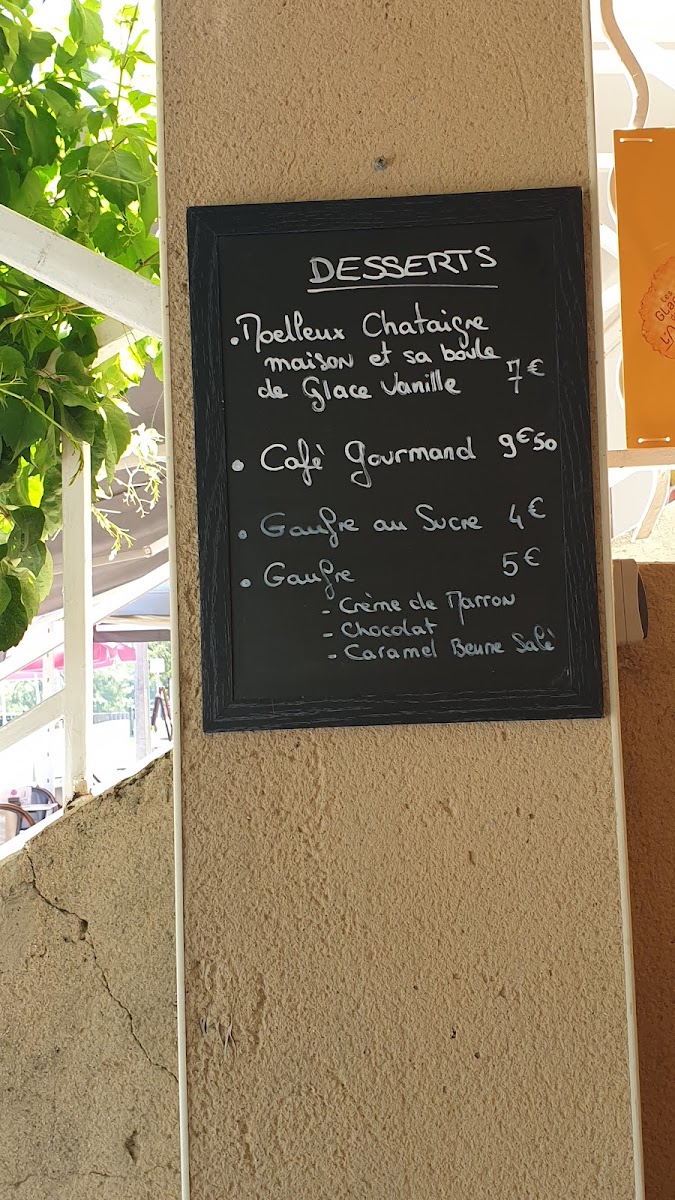 DESSERTS
• Moelleux Chataigne
maison et sa boule
de Glace Vanille 7€
• Café Gourmand 9€50
• Gaufre au Sucre 4€
• Gaufre 5€
- Crème de Marron
- Chocolat
- Caramel Beurre Salé